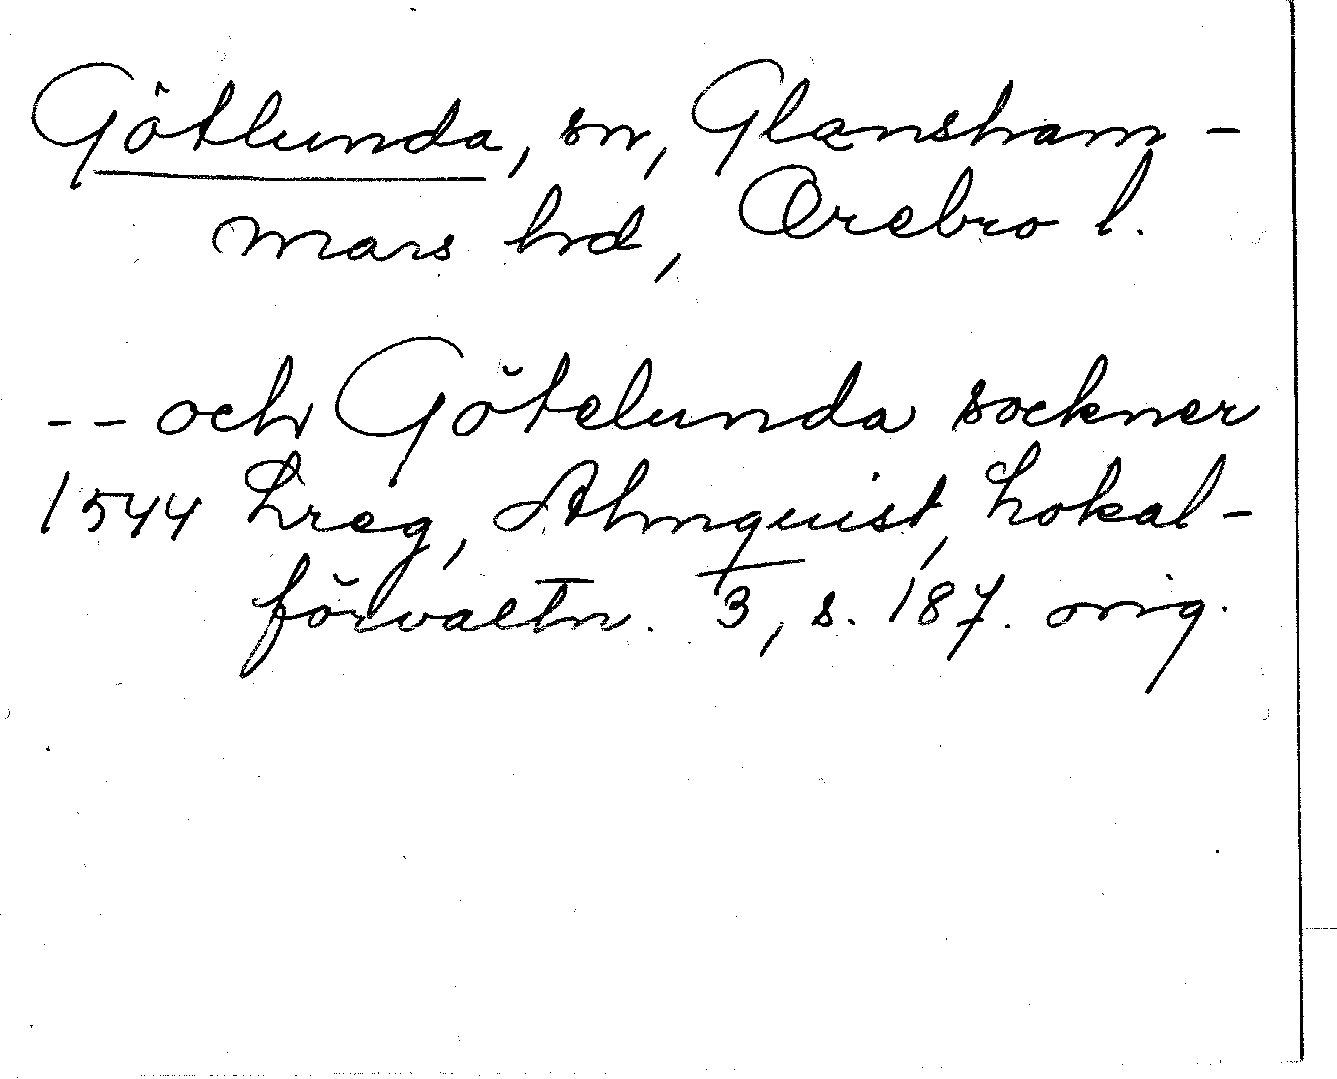 Götlunda, sn, Glansham-
mars hd, Örebro l.
-- och Götelunda sockner
1544 Lreg, Almquist, Lokal-
förvaltn. 3, s. 187. orig.